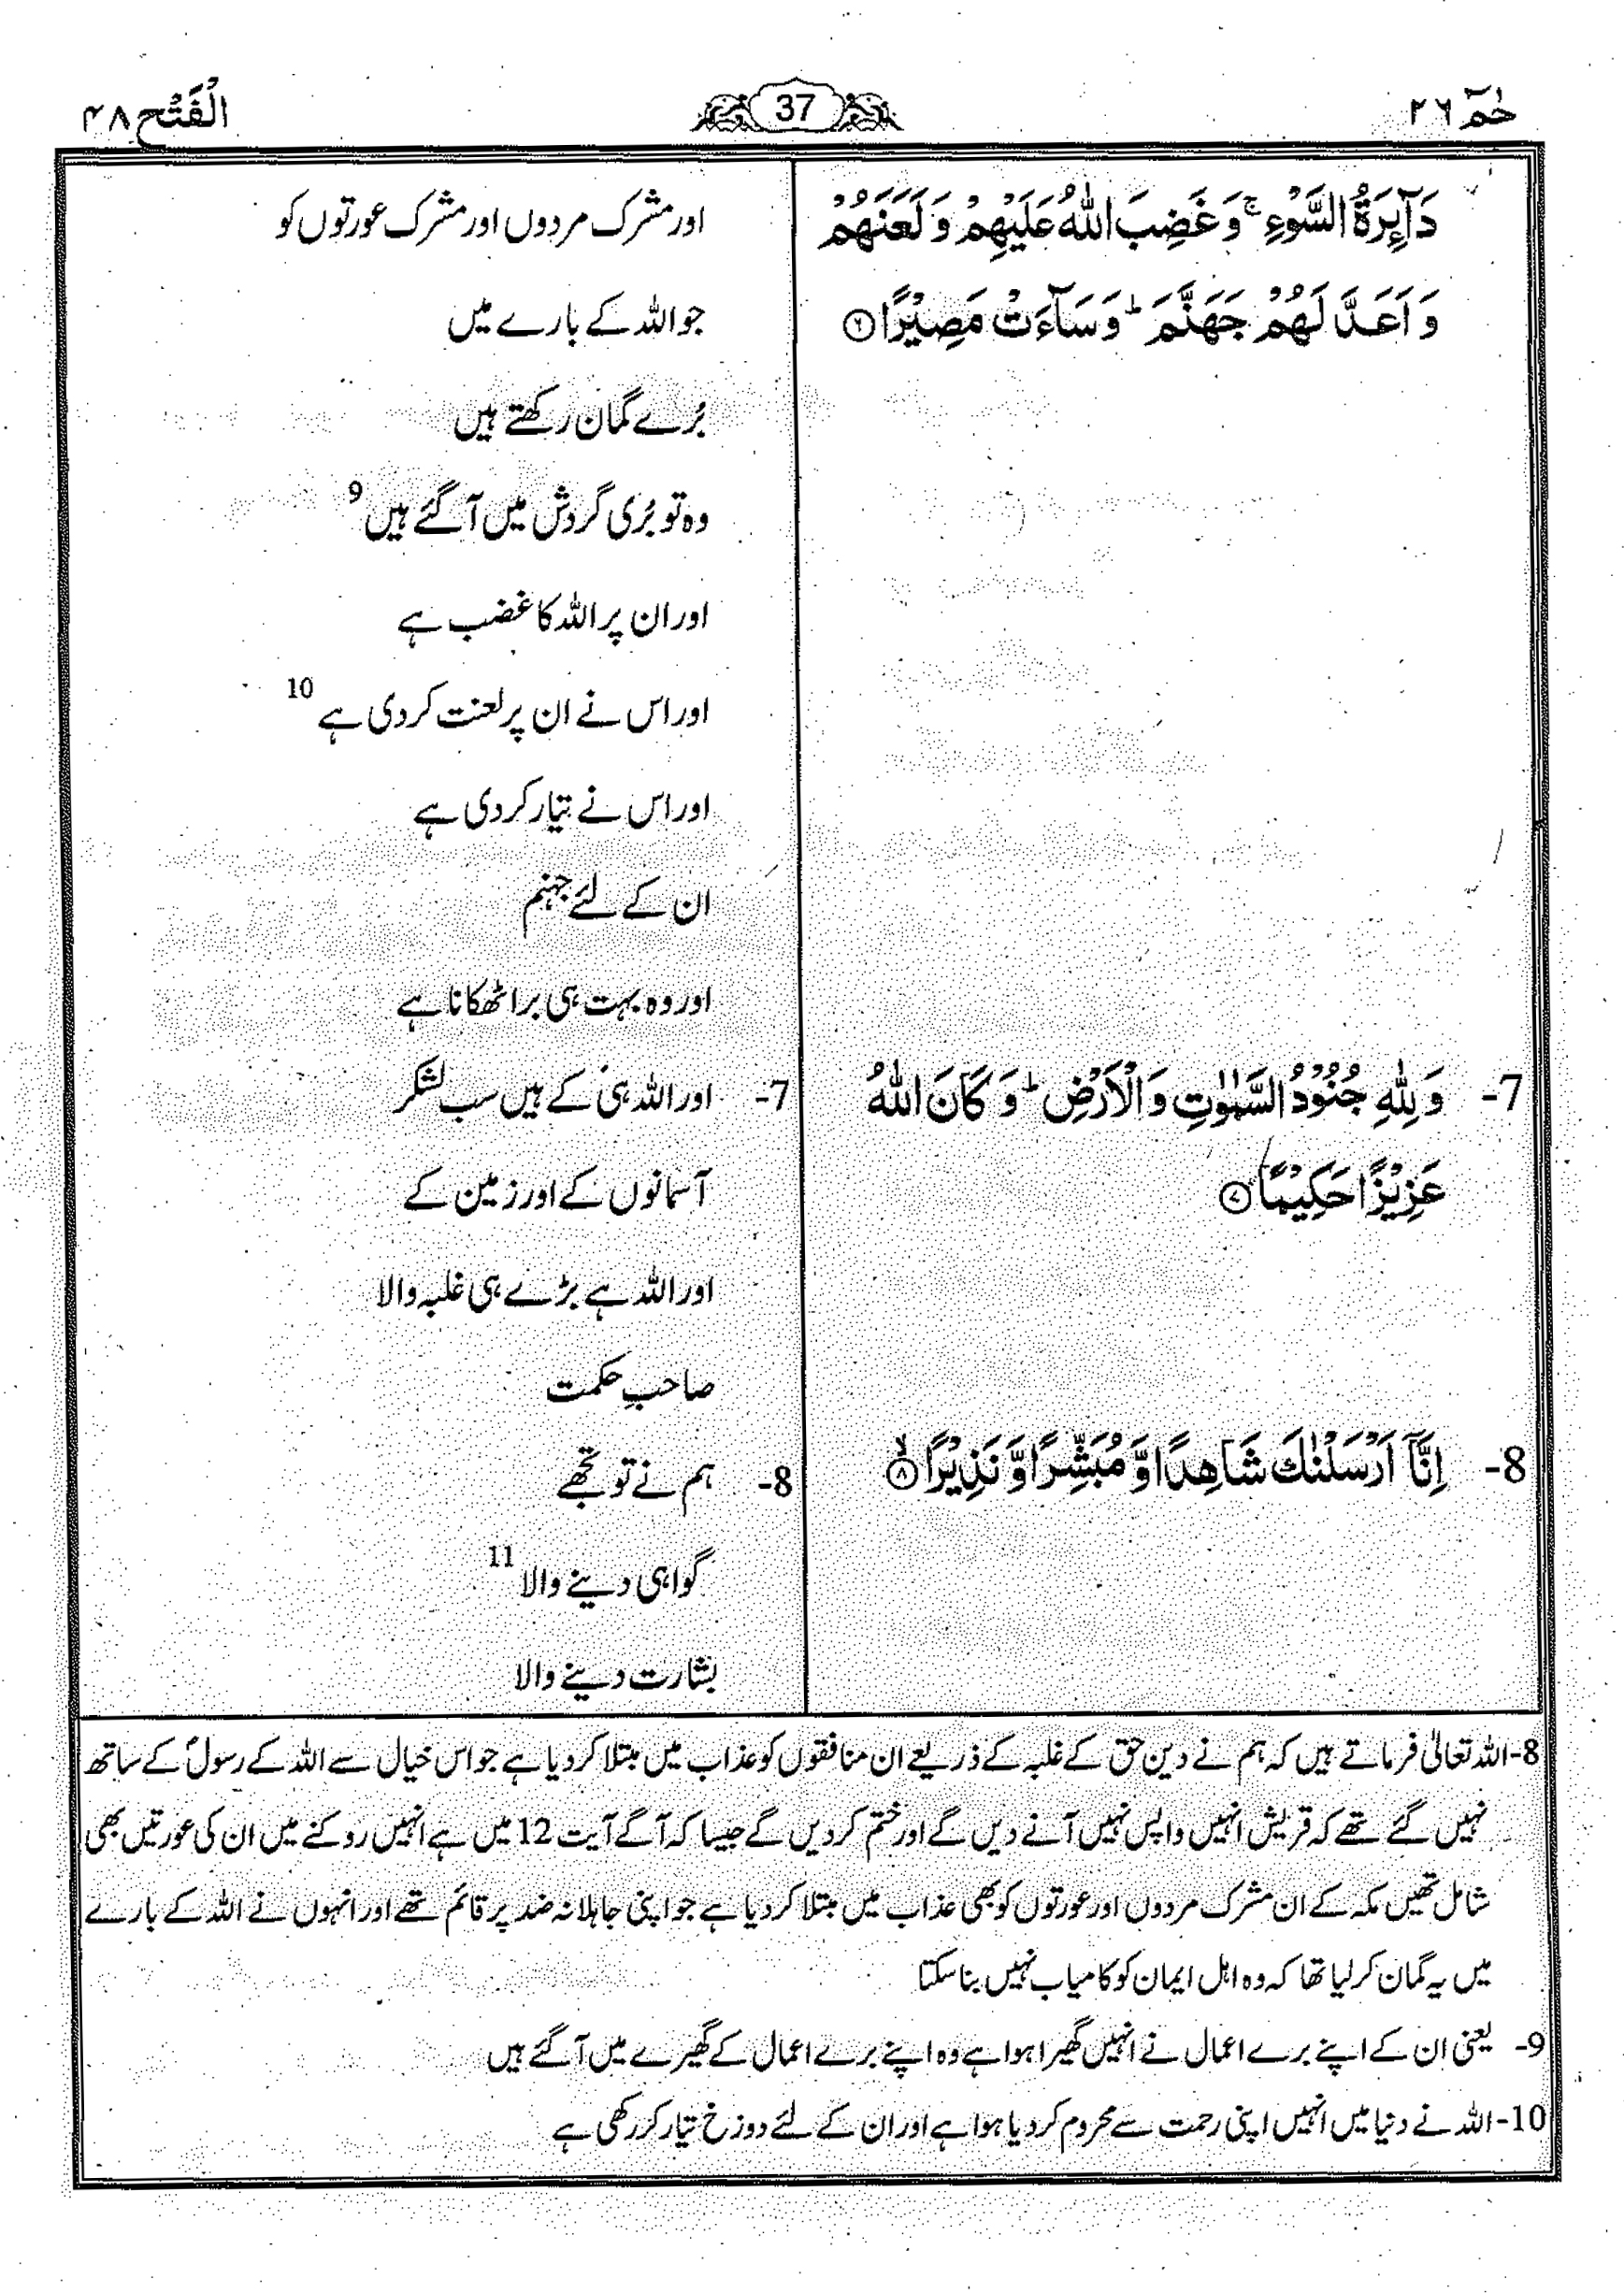 حٰمٓ ٢٦
37
الْفَتْح ٤٨
دَآئِرَةُ السَّوْءِ ۚ وَ غَضِبَ اللّٰهُ عَلَيْهِمْ وَ لَعَنَهُمْ
وَ اَعَدَّ لَهُمْ جَهَنَّمَ ؕ وَ سَآءَتْ مَصِيْرًا ۝۶
7- وَ لِلّٰهِ جُنُوْدُ السَّمٰوٰتِ وَ الْاَرْضِ ؕ وَ كَانَ اللّٰهُ
عَزِيْزًا حَكِيْمًا ۝۷
8- اِنَّاۤ اَرْسَلْنٰكَ شَاهِدًا وَّ مُبَشِّرًا وَّ نَذِيْرًا ۙ۝۸
اور مشرک مردوں اور مشرک عورتوں کو
جو اللہ کے بارے میں
بُرے گمان رکھتے ہیں
وہ تو بُری گردش میں آ گئے ہیں 9
اور ان پر اللہ کا غضب ہے
اور اس نے ان پر لعنت کر دی ہے 10
اور اس نے تیار کر دی ہے
ان کے لئے جہنم
اور وہ بہت ہی برا ٹھکانا ہے
7- اور اللہ ہی کے ہیں سب لشکر
آسمانوں کے اور زمین کے
اور اللہ ہے بڑے ہی غلبہ والا
صاحبِ حکمت
8- ہم نے تو تجھے
گواہی دینے والا 11
بشارت دینے والا
8- اللہ تعالیٰ فرماتے ہیں کہ ہم نے دین حق کے غلبہ کے ذریعے ان منافقوں کو عذاب میں مبتلا کر دیا ہے جو اس خیال سے اللہ کے رسولؐ کے ساتھ
نہیں گئے تھے کہ قریش انہیں واپس نہیں آنے دیں گے اور ختم کر دیں گے جیسا کہ آگے آیت 12 میں ہے انہیں روکنے میں ان کی عورتیں بھی
شامل تھیں مکہ کے ان مشرک مردوں اور عورتوں کو بھی عذاب میں مبتلا کر دیا ہے جو اپنی جاہلانہ ضد پر قائم تھے اور انہوں نے اللہ کے بارے
میں یہ گمان کر لیا تھا کہ وہ اہل ایمان کو کامیاب نہیں بنا سکتا
9- یعنی ان کے اپنے برے اعمال نے انہیں گھیرا ہوا ہے وہ اپنے برے اعمال کے گھیرے میں آ گئے ہیں
10- اللہ نے دنیا میں انہیں اپنی رحمت سے محروم کر دیا ہوا ہے اور ان کے لئے دوزخ تیار کر رکھی ہے